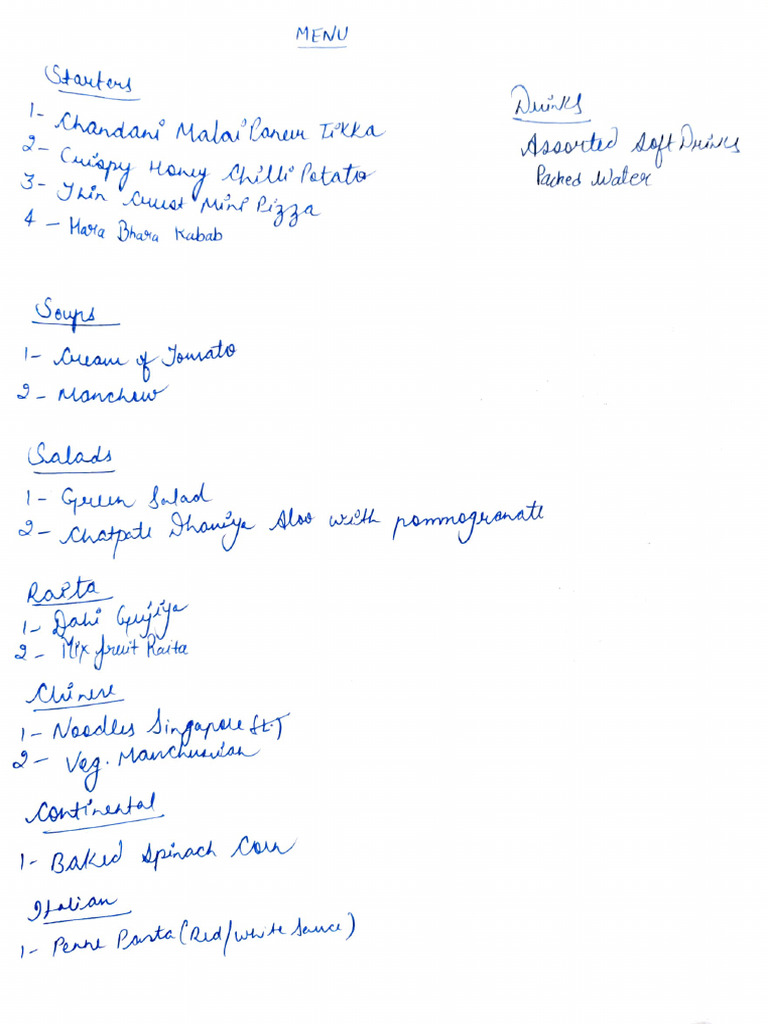 MENU
Starters
1- Chandani Malai Paneer Tikka
2- Crispy Honey Chilli Potato
3- Thin Crust Mini Pizza
4 - Hara Bhara Kabab
Drinks
Assorted Soft Drinks
Packed Water
Soups
1- Cream of Tomato
2 - Manchow
Salads
1- Green Salad
2- Chatpate Dhaniya Aloo with pommogranate
Raita
1- Dahi Gujiya
2 - Mix fruit Raita
Chinese
1- Noodles Singapore
2- Veg. Manchurian
Continental
1- Baked Spinach Corn
Italian
1- Penne Pasta (Red/white Sauce)